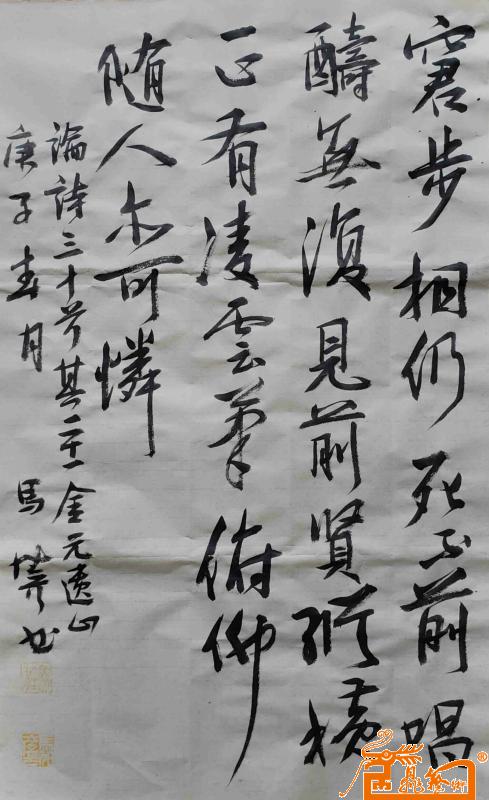 窘步相仍死不前唱
醻無復見前賢縱橫
正有凌雲筆俯仰
随人亦可憐
論詩三十首其二十一金元遺山
庚子春月 馬 书